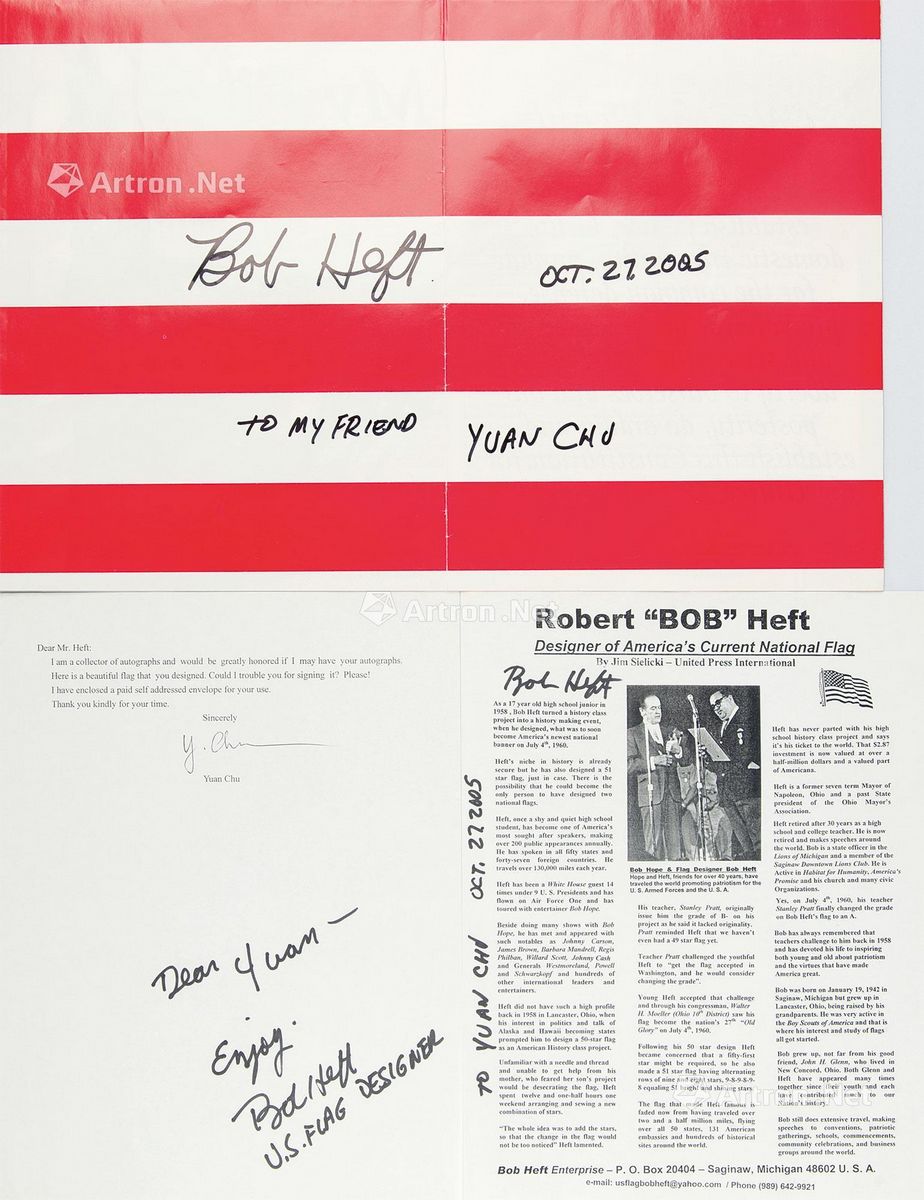 Artron.Net
Bob Heft
OCT. 27 2005
TO MY FRIEND
YUAN CHU
Artron.Net
Dear Mr. Heft:
I am a collector of autographs and would be greatly honored if I may have your autographs.
Here is a beautiful flag that you designed. Could I trouble you for signing it? Please!
I have enclosed a paid self addressed envelope for your use.
Thank you kindly for your time.
Sincerely
Y. Chu
Yuan Chu
Dear Yuan –
Enjoy.
Bob Heft
U.S. FLAG DESIGNER
Robert “BOB” Heft
Designer of America's Current National Flag
By Jim Sielicki – United Press International
Bob Heft
TO YUAN CHU OCT. 27 2005
As a 17 year old high school junior in
1958 , Bob Heft turned a history class
project into a history making event,
when he designed, what was soon to
become America's newest national
banner on July 4th, 1960.
Heft's niche in history is already
secure but he has also designed a 51
star flag, just in case. There is the
possibility that he could become the
only person to have designed two
national flags.
Heft, once a shy and quiet high school
student, has become one of America's
most sought after speakers, making
over 200 public appearances annually.
He has spoken in all fifty states and
forty-seven foreign countries. He
travels over 130,000 miles each year.
Heft has been a White House guest 14
times under 9 U. S. Presidents and has
flown on Air Force One and has
toured with entertainer Bob Hope.
Beside doing many shows with Bob
Hope, he has met and appeared with
such notables as Johnny Carson,
James Brown, Barbara Mandrell, Regis
Philban, Willard Scott, Johnny Cash
and Generals Westmoreland, Powell
and Schwarzkopf and hundreds of
other international leaders and
entertainers.
Heft did not have such a high profile
back in 1958 in Lancaster, Ohio, when
his interest in politics and talk of
Alaska and Hawaii becoming states
prompted him to design a 50-star flag
as an American History class project.
Unfamiliar with a needle and thread
and unable to get help from his
mother, who feared her son's project
would be desecrating the flag, Heft
spent twelve and one-half hours one
weekend arranging and sewing a new
combination of stars.
“The whole idea was to add the stars,
so that the change in the flag would
not be too noticed” Heft lamented.
Bob Hope & Flag Designer Bob Heft
Hope and Heft, friends for over 40 years, have
traveled the world promoting patriotism for the
U. S. Armed Forces and the U. S. A.
His teacher, Stanley Pratt, originally
issue him the grade of B- on his
project as he said it lacked originality.
Pratt reminded Heft that we haven't
even had a 49 star flag yet.
Teacher Pratt challenged the youthful
Heft to “get the flag accepted in
Washington, and he would consider
changing the grade”.
Young Heft accepted that challenge
and through his congressman, Walter
H. Moeller (Ohio 10th District) saw his
flag become the nation's 27th “Old
Glory” on July 4th, 1960.
Following his 50 star design Heft
became concerned that a fifty-first
star might be required, so he also
made a 51 star flag having alternating
rows of nine and eight stars, 9-8-9-8-9-
8 equaling 51 bright and shining stars.
The flag that made Heft famous is
faded now from having traveled over
two and a half million miles, flying
over all 50 states, 131 American
embassies and hundreds of historical
sites around the world.
Heft has never parted with his high
school history class project and says
it's his ticket to the world. That $2.87
investment is now valued at over a
half-million dollars and a valued part
of Americana.
Heft is a former seven term Mayor of
Napoleon, Ohio and a past State
president of the Ohio Mayor's
Association.
Heft retired after 30 years as a high
school and college teacher. He is now
retired and makes speeches around
the world. Bob is a state officer in the
Lions of Michigan and a member of the
Saginaw Downtown Lions Club. He is
Active in Habitat for Humanity, America's
Promise and his church and many civic
Organizations.
Yes, on July 4th, 1960, his teacher
Stanley Pratt finally changed the grade
on Bob Heft's flag to an A.
Bob has always remembered that
teachers challenge to him back in 1958
and has devoted his life to inspiring
both young and old about patriotism
and the virtues that have made
America great.
Bob was born on January 19, 1942 in
Saginaw, Michigan but grew up in
Lancaster, Ohio, being raised by his
grandparents. He was very active in
the Boy Scouts of America and that is
where his interest and study of flags
all got started.
Bob grew up, not far from his good
friend, John H. Glenn, who lived in
New Concord, Ohio. Both Glenn and
Heft have appeared many times
together since their youth and each
contributed to our
Nation's history.
Bob still does extensive travel, making
speeches to conventions, patriotic
gatherings, schools, commencements,
community celebrations, and business
groups around the world.
Artron.Net
Bob Heft Enterprise – P. O. Box 20404 – Saginaw, Michigan 48602 U. S. A.
e-mail: usflagbobheft@yahoo.com / Phone (989) 642-9921